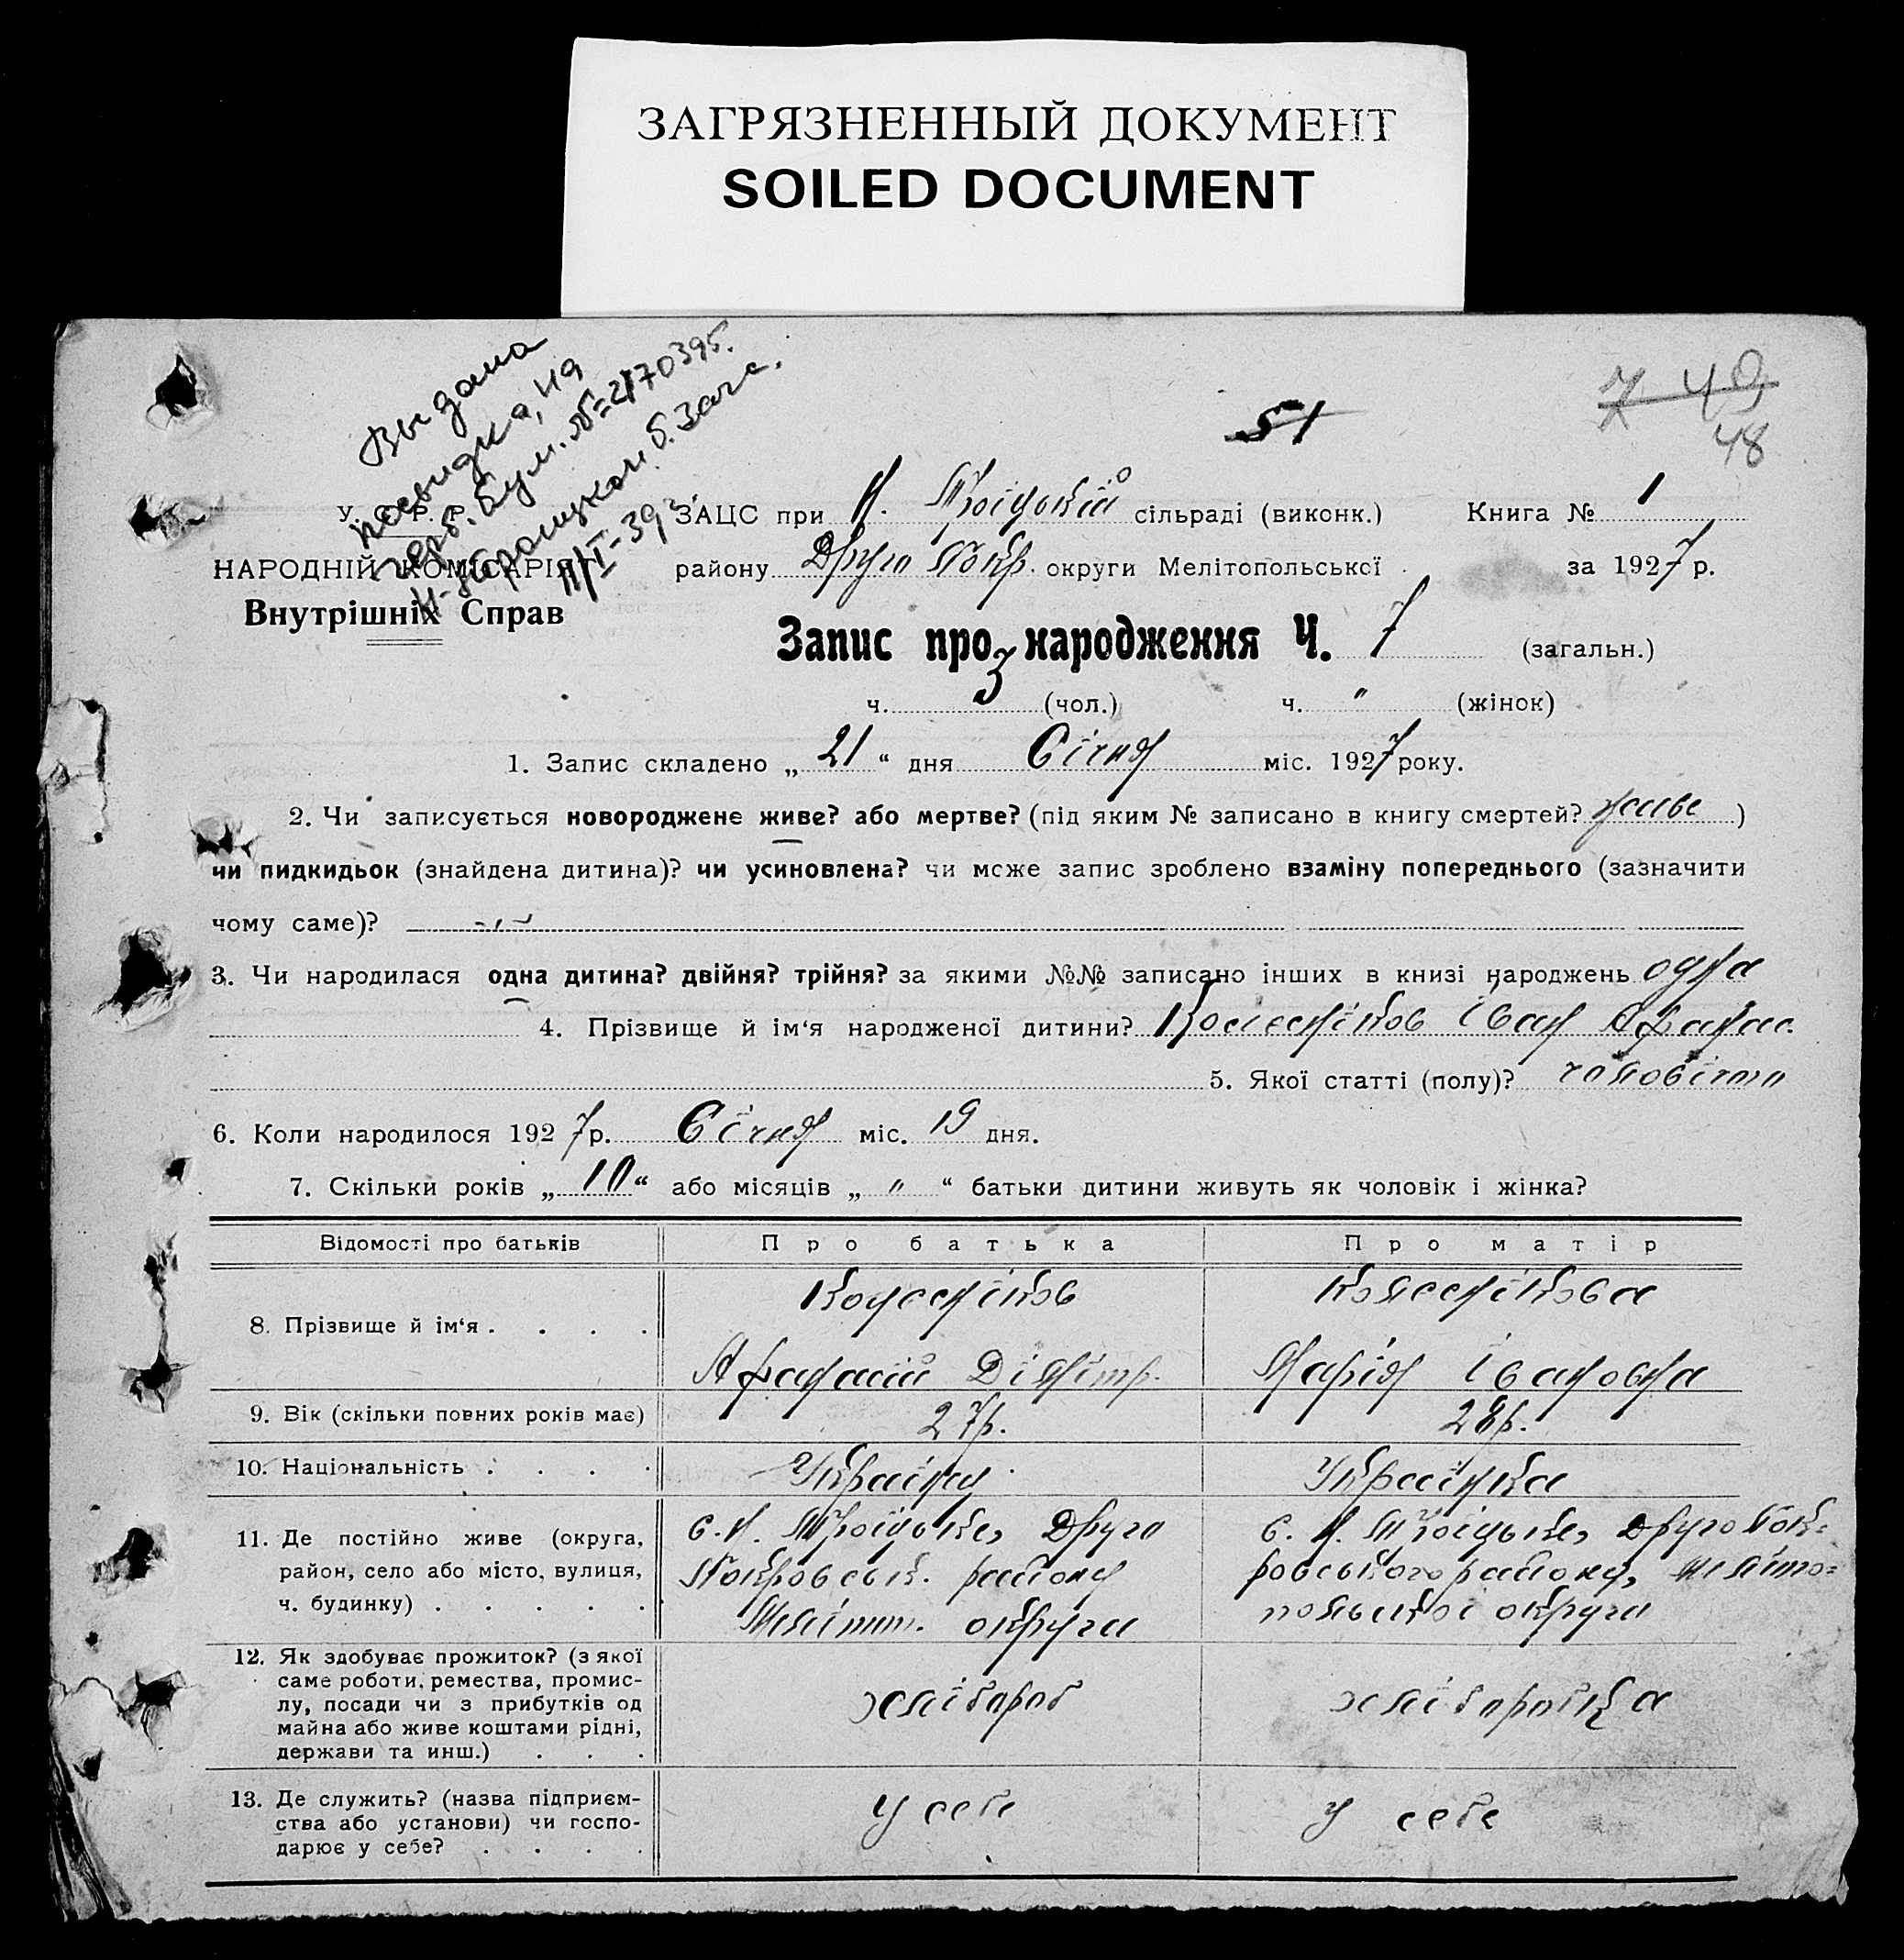 ЗАГРЯЗНЕННЫЙ ДОКУМЕНТ
SOILED DOCUMENT
Выдана
посвидка, на
герб. бум. №=2170395.
7 49
48
51
У. С. Р. Р.
НАРОДНІЙ КОМІСАРІЯТ
Внутрішніх Справ
ЗАЦС при Н. Троїцькій сільраді (виконк.) Книга № 1
району Друго Покр. округи Мелітопольської за 1927 р.
Запис про народження Ч. 7 (загальн.)
ч. 3 (чол.) ч. " (жінок)
1. Запис складено „ 21 “ дня Січня міс. 1927 року.
2. Чи записується новороджене живе? або мертве? (під яким № записано в книгу смертей? живе )
чи пидкидьок (знайдена дитина)? чи усиновлена? чи може запис зроблено взаміну попереднього (зазначити
чому саме)? -"-
3. Чи народилася одна дитина? двійня? трійня? за якими №№ записано інших в книзі народжень одна
4. Прізвище й ім‘я народженої дитини? Колесніков Іван Афанас.
5. Якої статті (полу)? чоловічої
6. Коли народилося 1927 р. Січня міс. 19 дня.
7. Скільки років „ 10 “ або місяців „ " “ батьки дитини живуть як чоловік і жінка?
Відомості про батьків Про батька Про матір
8. Прізвище й ім‘я . . . . Колесніков Колеснікова
Афанасій Дімітр. Марія Івановна
9. Вік (скільки повних років має) 27 р. 28 р.
10. Національність . . . . Українц. Українка
11. Де постійно живе (округа, с. Н. Троїцьке, Друго с. Н. Троїцьке, Друго Пок-
район, село або місто, вулиця, Покровськ. району ровського району, Меліто=
ч. будинку) . . . . . Меліт. округи польської округи
12. Як здобуває прожиток? (з якої
саме роботи, ремества, промис-
лу, посади чи з прибутків од хлібороб хліборобка
майна або живе коштами рідні,
держави та инш.) . . .
13. Де служить? (назва підприєм- у себе у себе
ства або установи) чи госпо-
дарює у себе? . . . .